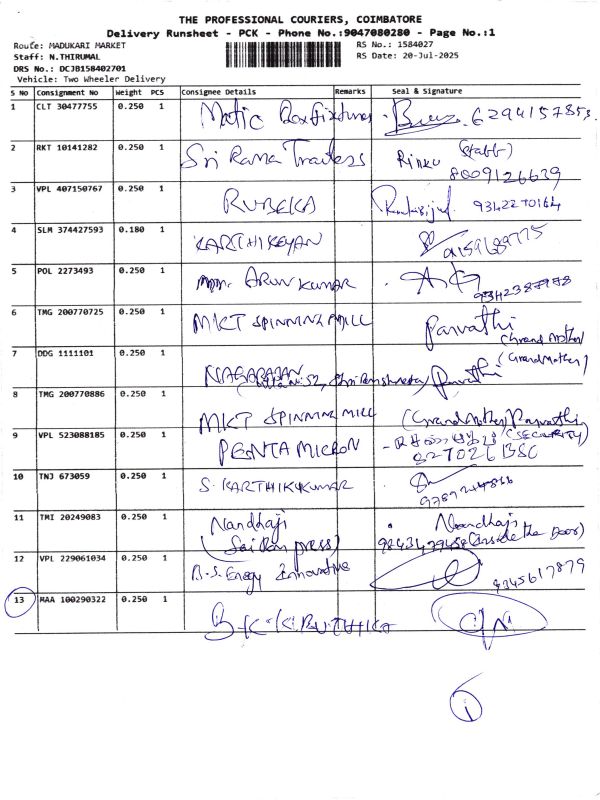 THE PROFESSIONAL COURIERS, COIMBATORE
Delivery Runsheet - PCK - Phone No.:9047080280 - Page No.:1
Route: MADUKARI MARKET RS No.: 1584027
Staff: N.THIRUMAL RS Date: 20-Jul-2025
DRS No.: DCJB158402701
Vehicle: Two Wheeler Delivery
S No Consignment No Weight PCS Consignee Details Remarks Seal & Signature
1 CLT 30477755 0.250 1 Matic 6294157853
2 RKT 10141282 0.250 1 Sri Rama Rinku (staff)
8009126639
3 VPL 407150767 0.250 1 RUBEKA 9342270164
4 SLM 374427593 0.180 1 KARTHIKEYAN
5 POL 2273493 0.250 1 ARUN KUMAR
6 TMG 200770725 0.250 1 MKT SPINNING MILL Parvathi
(Grand Mother)
7 DDG 1111101 0.250 1 NAGARAJAN Parvathi (Grand Mother)
8 TMG 200770886 0.250 1 MKT SPINNING MILL (Grand Mother) Parvathi
9 VPL 523088185 0.250 1 PENTA MICRON (SECURITY)
10 TNJ 673059 0.250 1 S. KARTHIKKUMAR
11 TMI 20249083 0.250 1 Nandhaji Nandhaji
(Sai Ram press) (Inside the Door)
12 VPL 229061034 0.250 1 Energy Innovative 9345617879
13 MAA 100290322 0.250 1 B.K.KIRUTHIKA